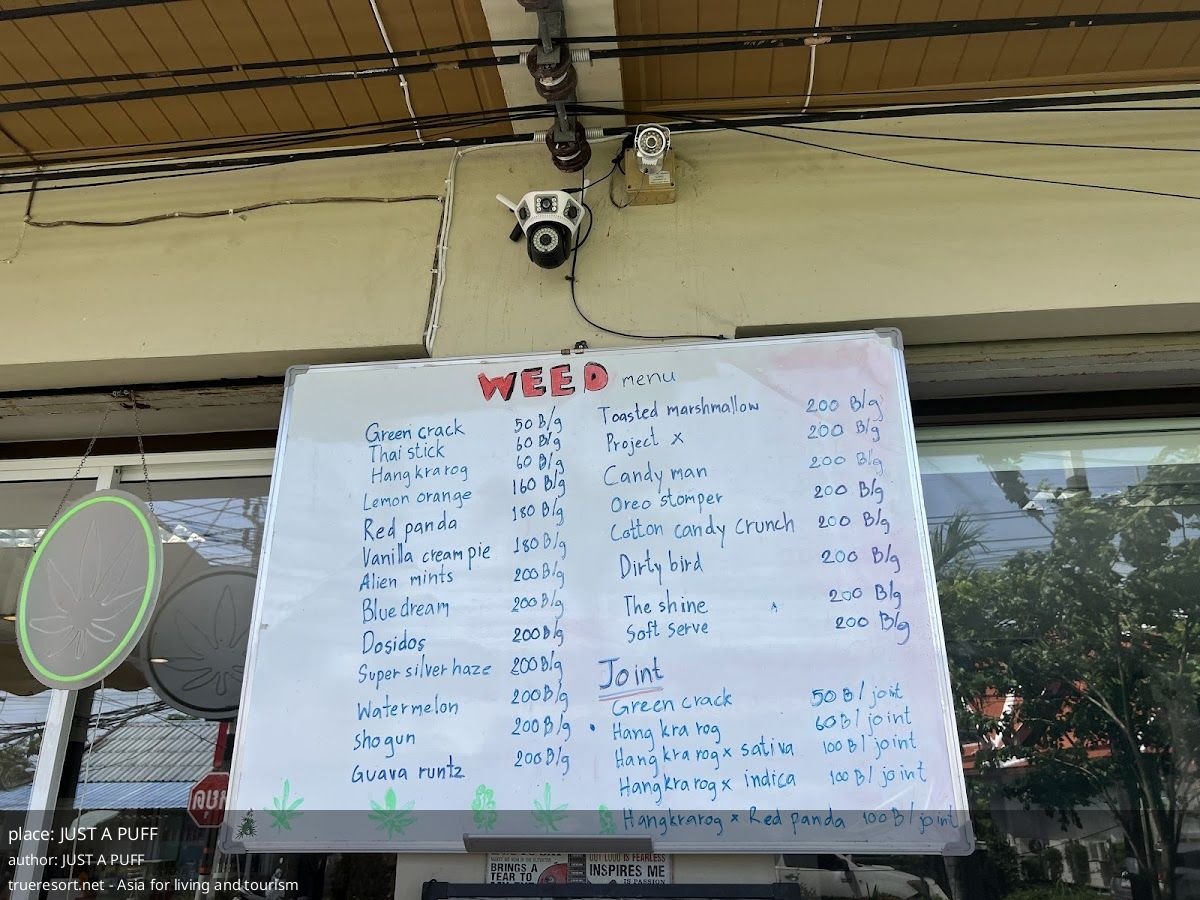 WEED menu
Green crack 50 B/g
Thai stick 60 B/g
Hangkrarog 60 B/g
Lemon orange 160 B/g
Red panda 180 B/g
Vanilla cream pie 180 B/g
Alien mints 200 B/g
Blue dream 200 B/g
Dosidos 200 B/g
Super silver haze 200 B/g
Watermelon 200 B/g
Shogun 200 B/g
Guava runtz 200 B/g
Toasted marshmallow 200 B/g
Project x 200 B/g
Candy man 200 B/g
Oreo stomper 200 B/g
Cotton candy crunch 200 B/g
Dirty bird 200 B/g
The shine 200 B/g
Soft serve 200 B/g
Joint
Green crack 50 B/joint
Hang kra rog 60 B/joint
Hang kra rog x sativa 100 B/joint
Hangkra rog x indica 100 B/joint
Hangkrarog x Red panda 100 B/joint
หยุด
BRINGS A
TEAR TO
OUT LOUD IS FEARLESS
INSPIRES ME
IS PASSION
place: JUST A PUFF
author: JUST A PUFF
trueresort.net - Asia for living and tourism